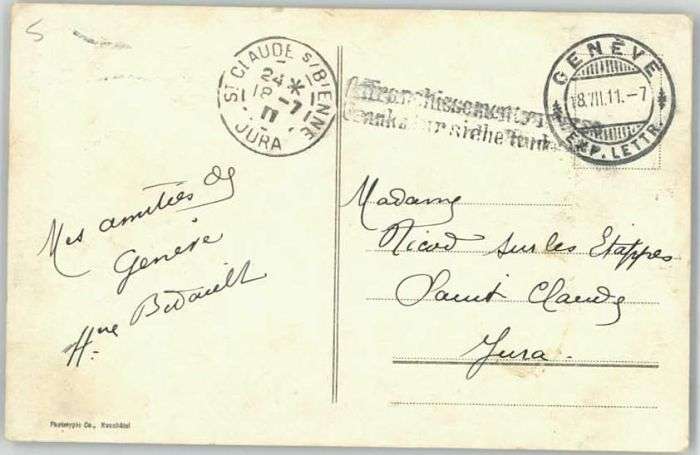 5
ST CLAUDE s/BIENNE
24 *
18 -7
11
JURA
Affranchissement
GENÈVE
18.VII.11.-7
EXP. LETTR.
Mes amitiés de
Genève
Hne
Madame
Nicod sur les Etappes
Saint Claude
Jura.
Phototypie Co., Neuchâtel